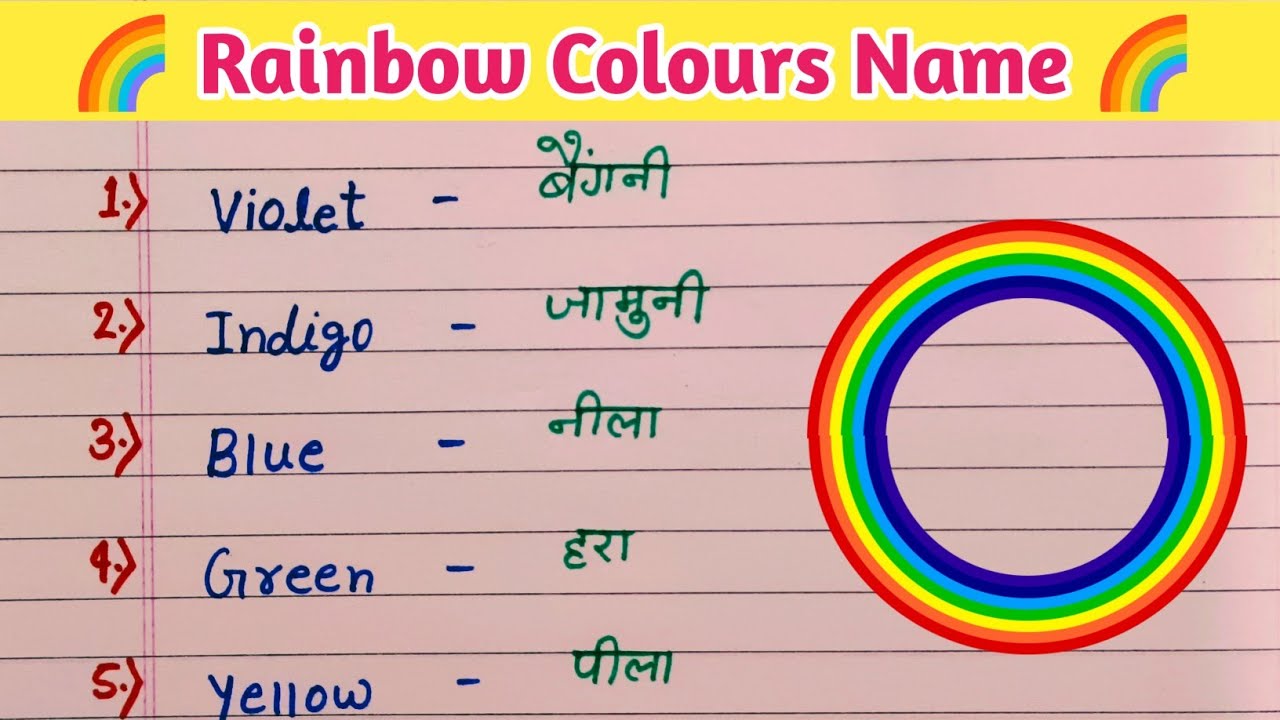 Rainbow Colours Name
1.) Violet - बैंगनी
2.) Indigo - जामुनी
3.) Blue - नीला
4.) Green - हरा
5.) Yellow - पीला